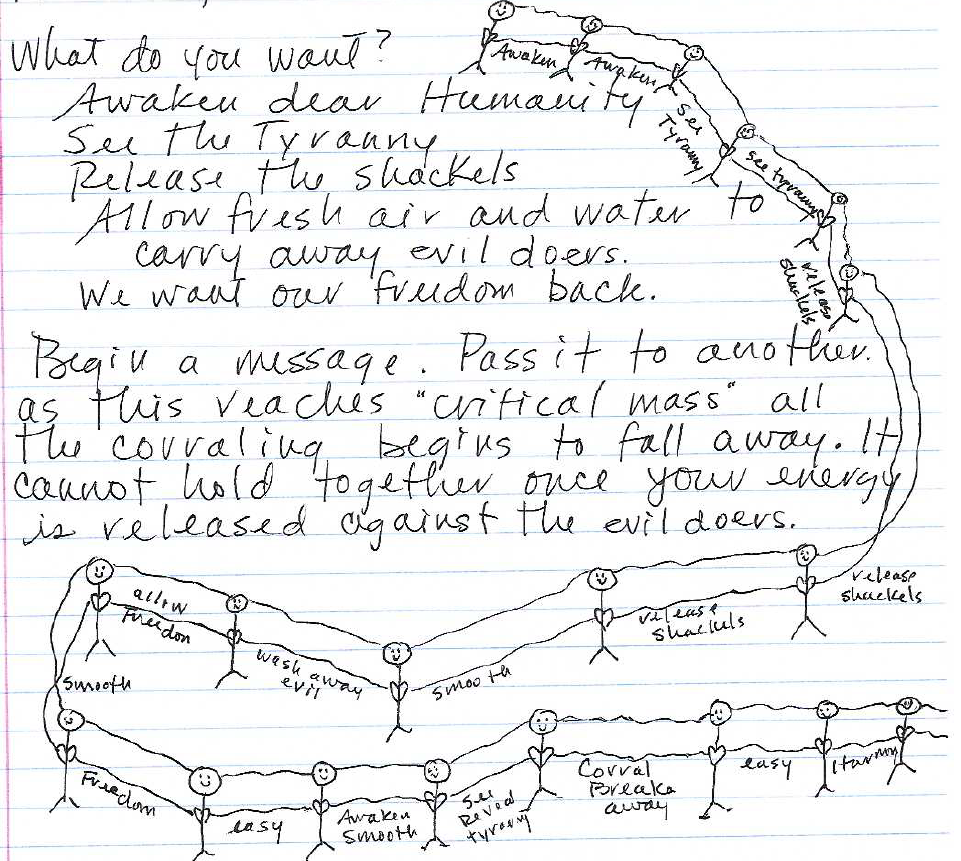 What do you want?
Awaken dear Humanity
See the Tyranny
Release the shackels
Allow fresh air and water to
carry away evil doers.
We want our freedom back.
Begin a message. Pass it to another.
as this reaches "critical mass" all
the corraling begins to fall away. It
cannot hold together once your energy
is released against the evil doers.
Awaken
Awaken
See
Tyranny
see tyranny
release
shackels
release
shackels
release
shackels
smooth
wash away
evil
allow
Freedon
smooth
Freedom
easy
Awaken
Smooth
see
tyranny
Corral
Breaks
away
easy